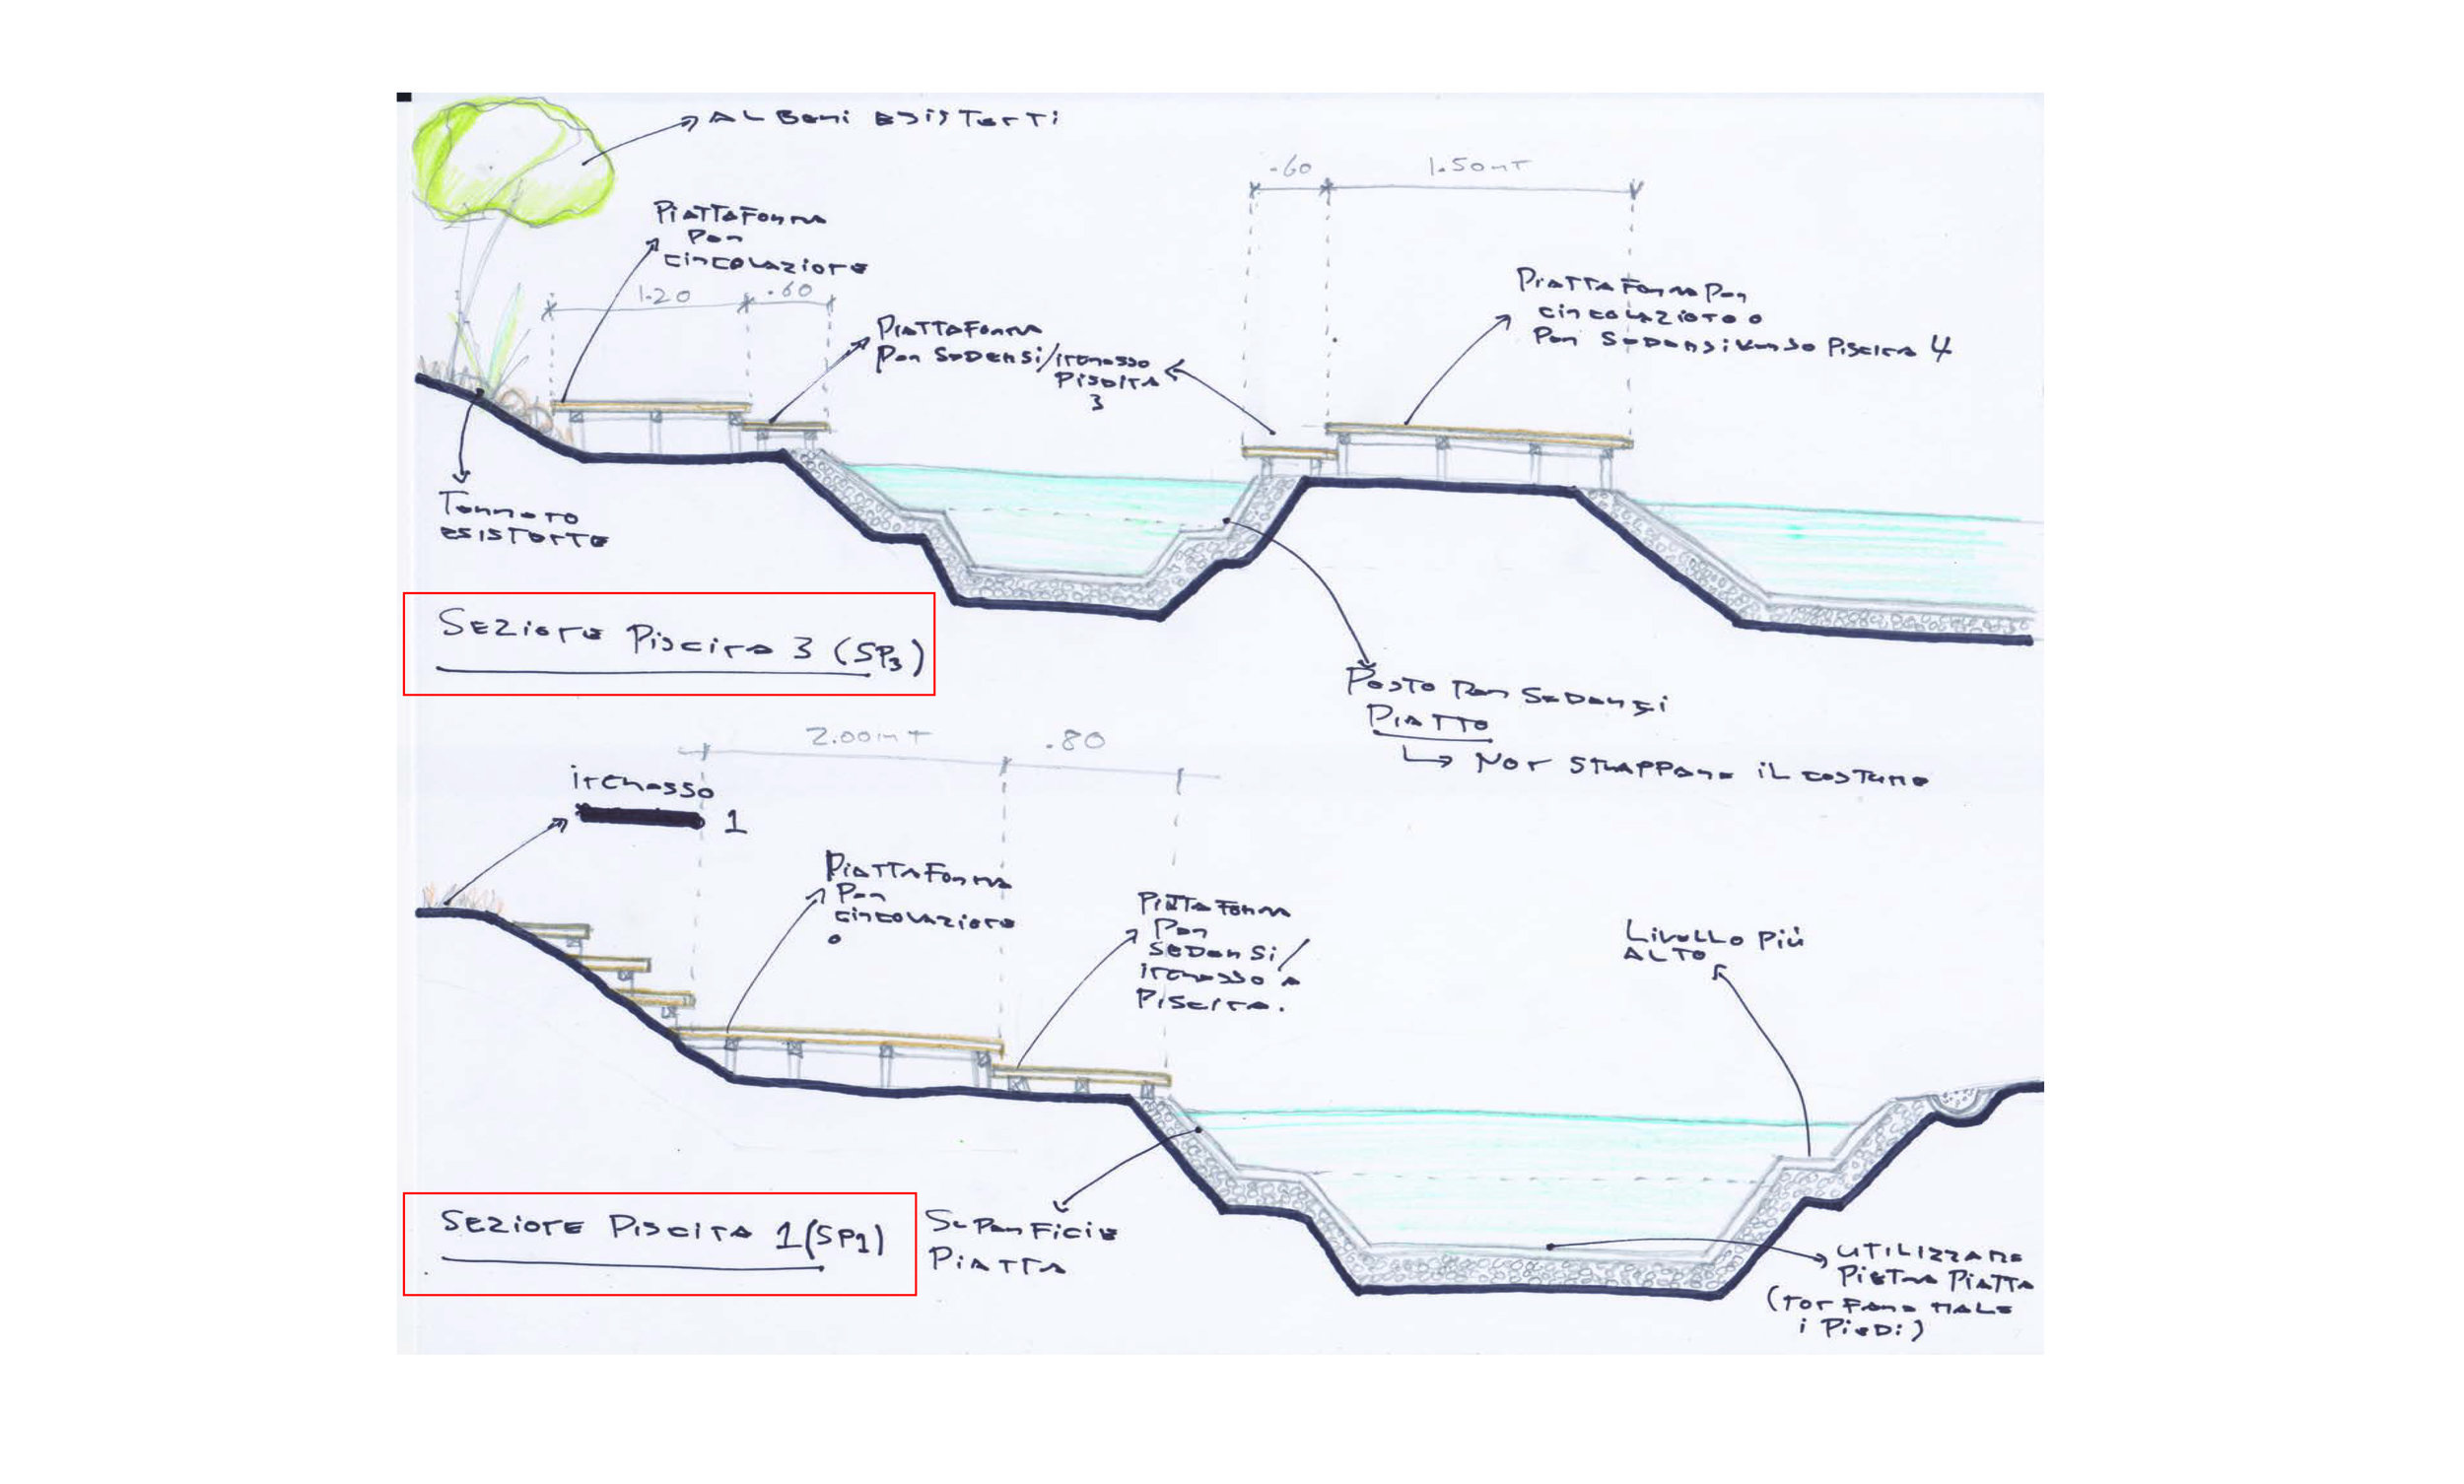 ALBERI ESISTENTI
PIATTAFORMA
PER
CIRCOLAZIONE
1.20
.60
PIATTAFORMA
PER SEDERSI/INGRESSO
PISCINA
3
.60
1.50mT
PIATTAFORMA PER
CIRCOLAZIONE O
PER SEDERSI VERSO PISCINA 4
TERRENO
ESISTENTE
SEZIONE PISCINA 3 (SP3)
POSTO PER SEDERSI
PIATTO
NON STRAPPARE IL COSTUME
2.00mT
.80
INGRESSO
1
PIATTAFORMA
PER
CIRCOLAZIONE
PIATTAFORMA
PER
SEDERSI/
INGRESSO A
PISCINA.
LIVELLO PIÙ
ALTO
SEZIONE PISCINA 1 (SP1)
SUPERFICIE
PIATTA
UTILIZZARE
PIETRA PIATTA
(NON FARE MALE
I PIEDI)